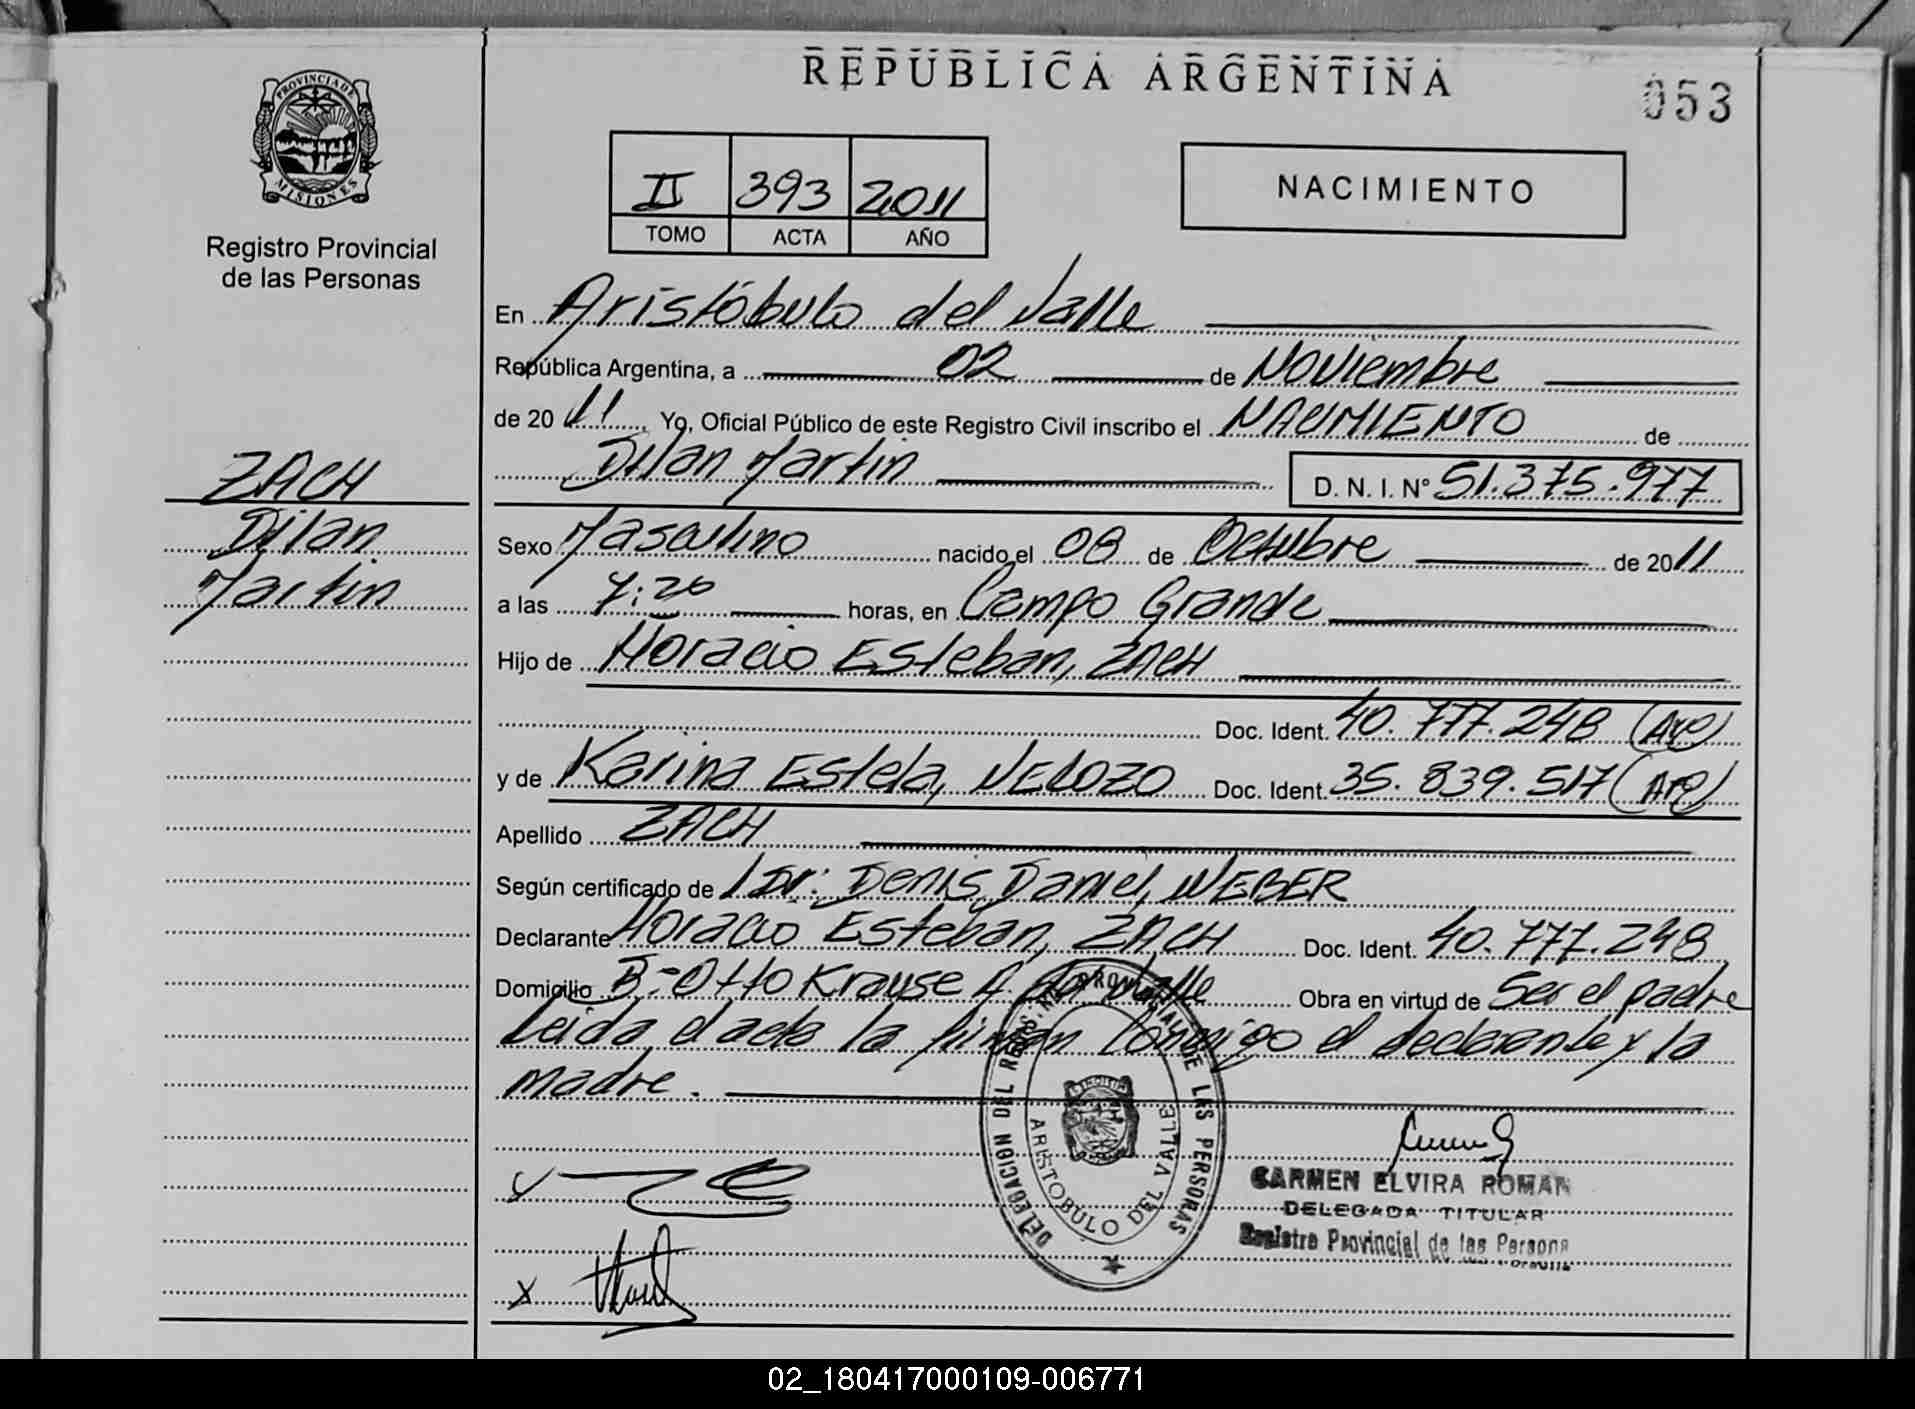 REPUBLICA ARGENTINA
053
PROVINCIA DE
MISIONES
Registro Provincial
de las Personas
II 393 2011
TOMO ACTA AÑO
NACIMIENTO
En Aristóbulo del Valle
República Argentina, a 02 de Noviembre
de 2011. Yo, Oficial Público de este Registro Civil inscribo el NACIMIENTO de
Dilan Martin D. N. I. N° 51.375.977
ZACH
Dilan
Martin
Sexo Masculino nacido el 08 de Octubre de 2011
a las 7:20 horas, en Campo Grande
Hijo de Horacio Esteban, ZACH
Doc. Ident. 40.777.248 (Arg)
y de Karina Estela, VELOZO Doc. Ident. 35.839.517 (Arg)
Apellido ZACH
Según certificado de Dr: Denis Daniel, WEBER
Declarante Horacio Esteban, ZACH Doc. Ident. 40.777.248
Domicilio B= Otto Krause A. del Valle Obra en virtud de Ser el padre
Leida el acta la firman conmigo el declarante y la
madre.
DELEGACION DEL REGIS. PROVINCIAL DE LAS PERSONAS
ARISTOBULO DEL VALLE
CARMEN ELVIRA ROMAN
DELEGADA TITULAR
Registro Provincial de las Persona
x
02_180417000109-006771